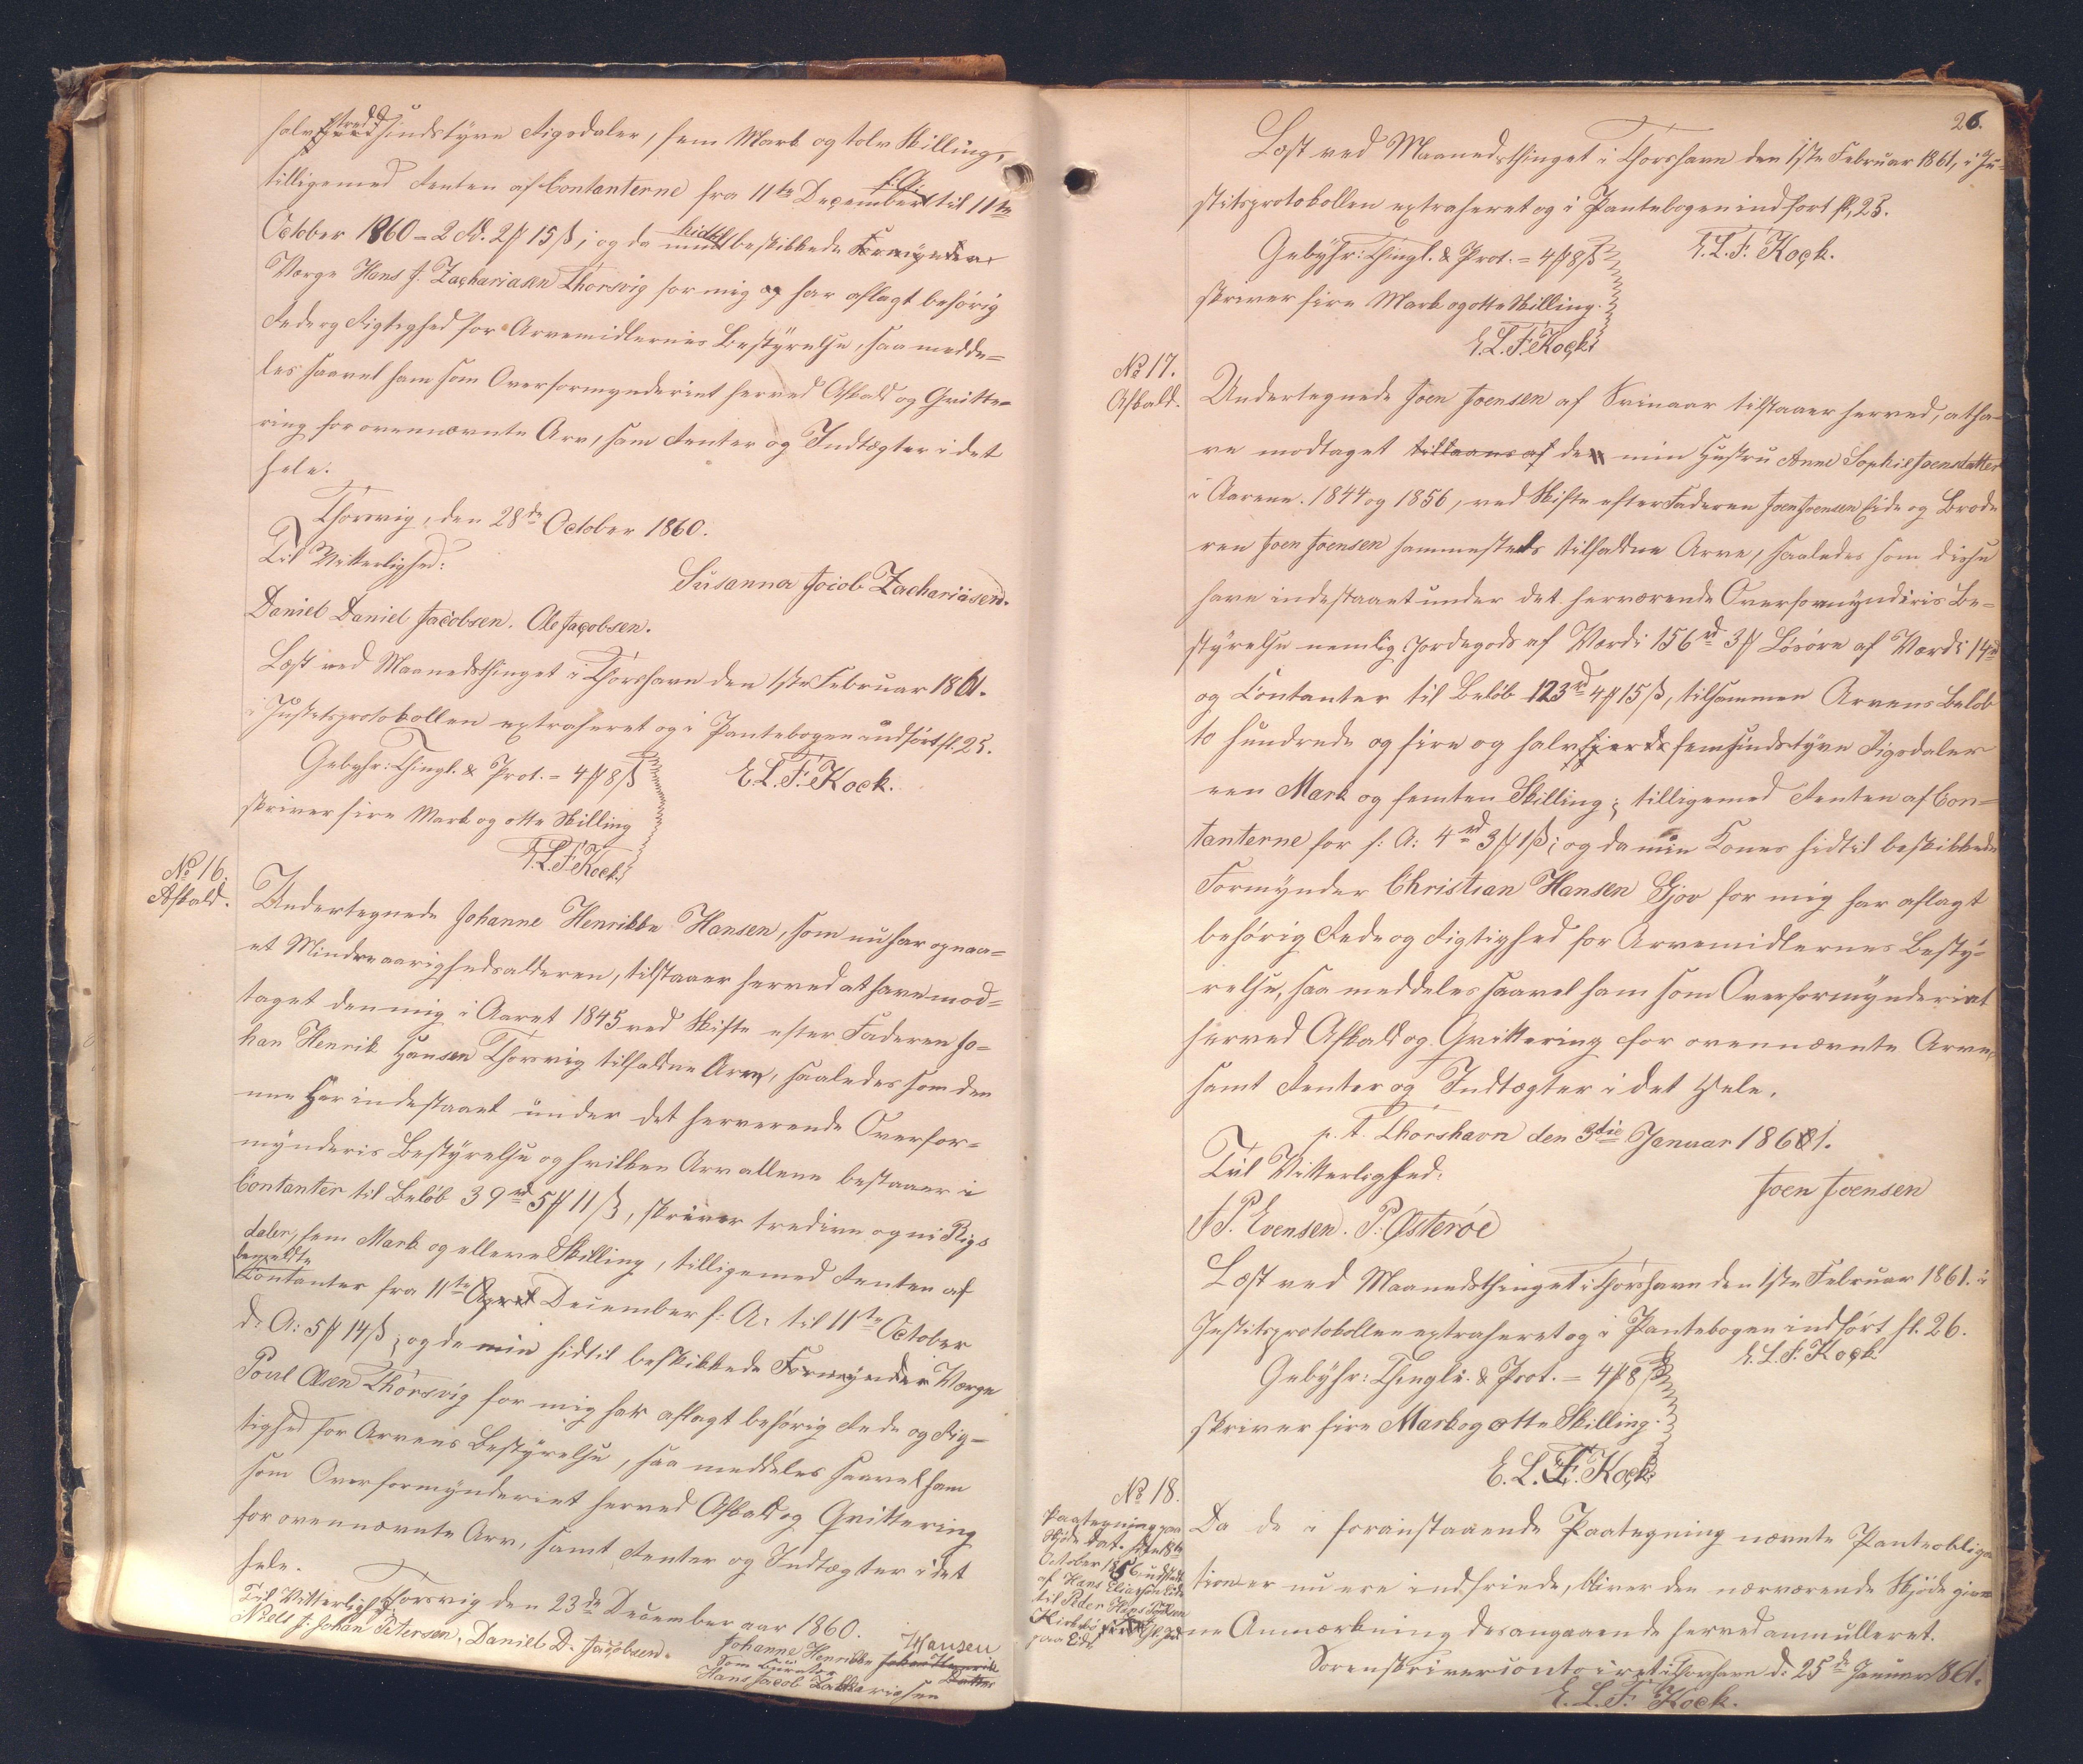 halvtredsindstyve Rigsdaler, fem Mark og tolv Skilling,
tilligemed Renten af Contanterne fra 11te December f. A. til 11te
October 1860 = 2 Rd. 2 ℳ 15 ß; og da hidtil beskikkede Formynder
Værge Hans J. Zachariasen Thorsvig for mig og har aflagt behørig
Rede og Rigtighed for Arvemidlernes Bestyrelse, saa medde-
les saavel ham som Overformynderiet herved Afkald og Qvitte-
ring for ovennævnte Arv, som Renter og Indtægter i det
hele.
Thorsvig, den 28de October 1860.
Til Vitterlighed:
Susanna Jocob Zachariasen.
Daniel Daniel Jacobsen. Ole Jacobsen.
Læst ved Maanedsthinget i Thorshavn den 1ste Februar 1861.
i Justitsprotokollen extraheret og i Pantebogen indført fl. 25.
Gebyhr: Thingl. & Prot. = 4 ℳ 8 ß
E. L. F. Kock.
skriver fire Mark og otte Skilling
E. L. F. Kock.
No 16.
Afkald.
Undertegnede Johanne Henrikke Hansen, som nu har opnaa-
et Mindreaarighedsalderen, tilstaaer herved at have mod-
taget den mig i Aaret 1845 ved Skifte efter Faderen Jo-
han Henrik Hansen Thorsvig tilfaldne Arv, saaledes som den
nne Har indestaaet under det herværende Overfor-
mynderis Bestyrelse og hvilken Arv allene bestaaer i
Contanter til Beløb 39 rd 5 ℳ 11 ß, skriver tredive og ni Rigs
daler, fem Mark og elleve Skilling, tilligemed Renten af
bemeldte
Contanter fra 11te April December f: A: til 11te October
d: A: 5 ℳ 14 ß; og da min hidtil beskikkede Formynder Værge
Poul Olsen Thorsvig for mig har aflagt behørig Rede og Rig-
tighed for Arvens Bestyrelse, saa meddeles saavel ham
som Overformynderiet herved Afkald og Qvittering
for ovennævnte Arv, samt Renter og Indtægter i det
hele.
Thorsvig den 23de December aar 1860.
Til Vitterlighed
Niels J: Johan Petersen, Daniel D. Jacobsen.
Johanne Henrikke Johan Henrik Datter Hansen
Som Curator
Hans Jacob Zakkariasen
26.
Læst ved Maanedsthinget i Thorshavn den 1ste Februar 1861, i Ju-
stitsprotokollen extraheret og i Pantebogen indført fl. 25.
Gebyhr: Thingl. & Prot. = 4 ℳ 8 ß
E. L. F. Kock.
skriver fire Mark og otte Skilling.
E. L. F. Kock
No 17.
Afkald.
Undertegnede Joen Joensen af Svinaar tilstaaer herved, at ha-
ve modtaget tillaans af den min Hustru Anne Sophie Joensdatter
i Aarene 1844 og 1856, ved Skifte efter Faderen Joen Joensen Eide og Brode
ren Joen Joensen sammesteds tilfaldne Arve, saaledes som disse
have indestaaet under det herværende Overformynderis Be-
styrelse nemlig Jordegods af Værdi 156 rd 3 ℳ Løsøre af Værdi 14 rd
og Contanter til Beløb 123 rd 4 ℳ 15 ß, tilsammen Arvens Beløb
to hundrede og fire og halvfjerde femsindstyve Rigsdaler
een Mark og femten Skilling; tilligemed Renten af Con-
tanterne for f: A: 4 rd 3 ℳ 1 ß; og da min Kones hidtil beskikkede
Formynder Christian Hansen Gjov for mig har aflagt
behørig Rede og Rigtighed for Arvemidlernes Besty-
relse, saa meddeles saavel ham som Overformynderiet
herved Afkald og Qvittering for ovennævnte Arve,
samt Renter og Indtægter i det Hele.
p. t. Thorshavn den 3die Januar 1861.
Til Vitterlighed:
Joen Joensen
J P. Evensen. P. Østerøe
Læst ved Maanedsthinget i Thorshavn den 1ste Februar 1861. i
Justitsprotokollen extraheret og i Pantebogen indført fl. 26.
Gebyhr: Thingl: & Prot. = 4 ℳ 8 ß
E. L. F. Kock
skriver fire Mark og otte Skilling.
E. L. F. Kock
No 18.
Paategning paa
Skjøde dat. den 18de
October 1856 udstedt
af Hans Eliasen Eide
til Peder
Kirkebø
paa Eide
Da de i foranstaaende Paategning nævnte Panteobliga
tioner nu ere indfriede, bliver den nærværende Skjøde given
ne Anmærkning desangaaende herved annulleret.
Sorenskrivercontoiret i Thorshavn d: 25de Januar 1861.
E. L. F. Kock.